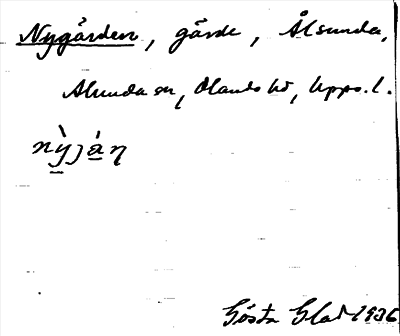 Nygården, gärde, Ålsunda,
Alunda sn, Olands hd, Upps. l.
nỳján
Gösta Glad 1936